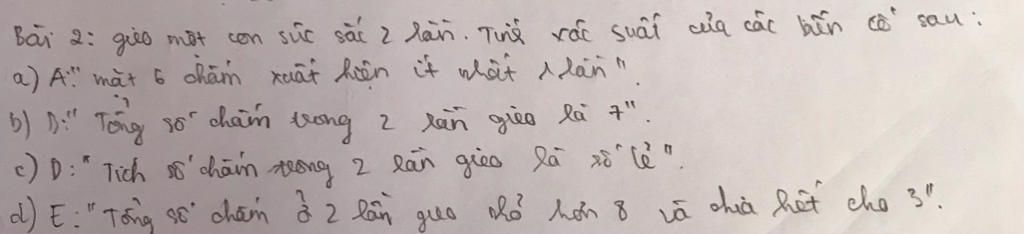 Bài 2: gieo một con súc sắc 2 lần. Tính xác suất của các biến cố sau:
a) A: "mặt 6 chấm xuất hiện ít nhất 1 lần".
b) D: "Tổng số chấm trong 2 lần gieo là 7".
c) D: "Tích số chấm trong 2 lần gieo là số lẻ".
d) E: "Tổng số chấm ở 2 lần gieo nhỏ hơn 8 và chia hết cho 3".